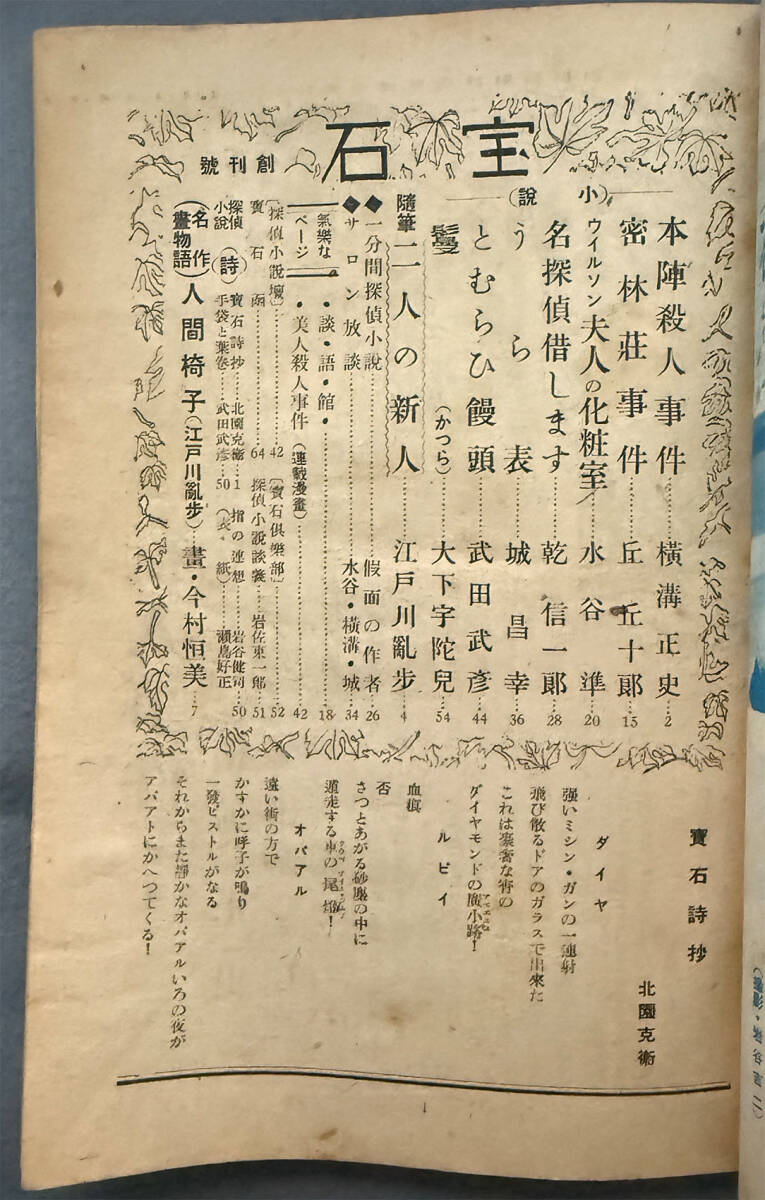 宝石
創刊號
(小說)
本陣殺人事件………横溝正史…2
密林莊事件………丘丘十郎…15
ウイルソン夫人の化粧室………水谷準…20
名探偵借します………乾信一郎…28
うら表………城昌幸…36
とむらひ饅頭………武田武彦…44
鬘(かつら)………大下宇陀兒…54
隨筆 二人の新人………江戸川亂歩…4
◆一分間探偵小說………假面の作者…26
◆サロン放談………水谷・橫溝・城…34
氣樂なページ
・談・語・館・………18
・美人殺人事件(連載漫畫)………42
〔探偵小說壇〕………42
〔寶石俱樂部〕………52
寶石函………64
探偵小說談義………岩佐東一郎…51
探偵小說(詩)
寶石詩抄………北園克衞…1
指の連想………岩谷健司…50
手袋と葉卷………武田武彦…50
(表紙)………瀬島好正
(名作畫物語)人間椅子(江戸川亂歩)………畫・今村恒美…7
寶石詩抄
北園克衞
ダイヤ
強いミシン・ガンの一連射
飛び散るドアのガラスで出來た
これは豪奢な宵の
ダイヤモンドの廣小路!
ルビイ
血痕
否
さつとあがる砂塵の中に
遁走する車の尾燈!
オパアル
遠い街の方で
かすかに呼子が鳴り
一發ピストルがなる
それからまた靜かなオパアルいろの夜が
アパアトにかへつてくる!